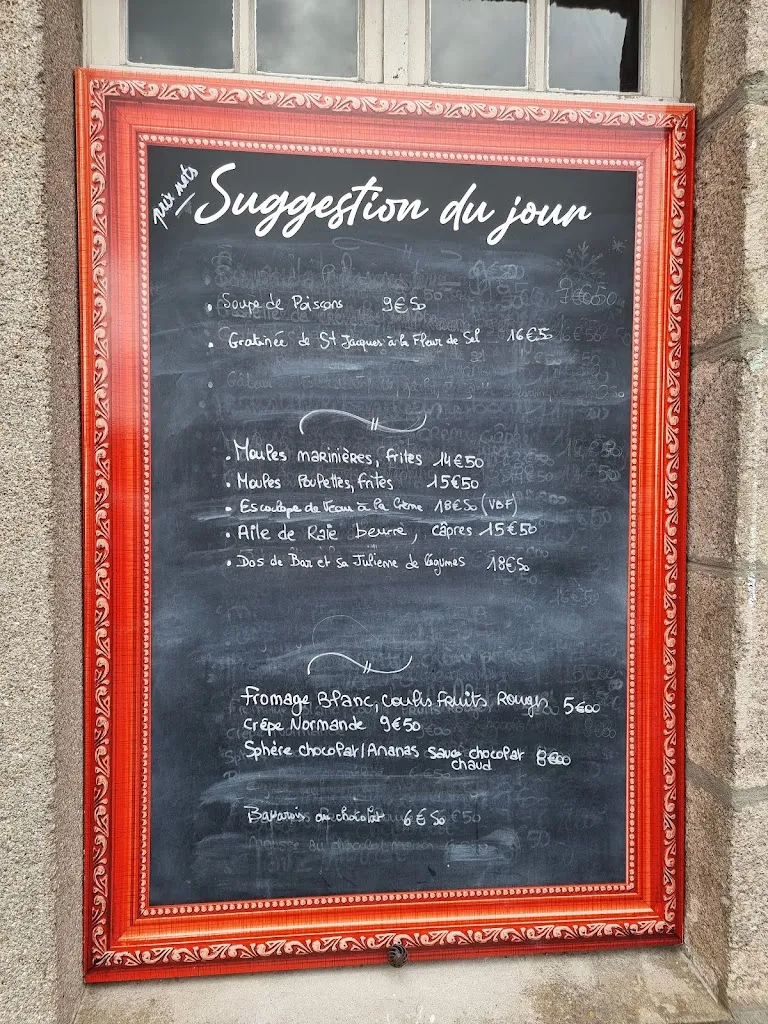 prix nets
Suggestion du jour
• Soupe de Poissons 9€50
• Gratinée de St Jacques à la Fleur de Sel 16€50
• Moules marinières, frites 14€50
• Moules Poulettes, frites 15€50
• Escalope de Veau à la Crème 18€50 (VBF)
• Aile de Raie beurre, câpres 15€50
• Dos de Bar et sa Julienne de légumes 18€50
fromage Blanc, coulis fruits Rouges 5€00
crêpe Normande 9€50
Sphère chocolat/Ananas sauce chocolat 8€00
chaud
Bavarois au chocolat 6€50